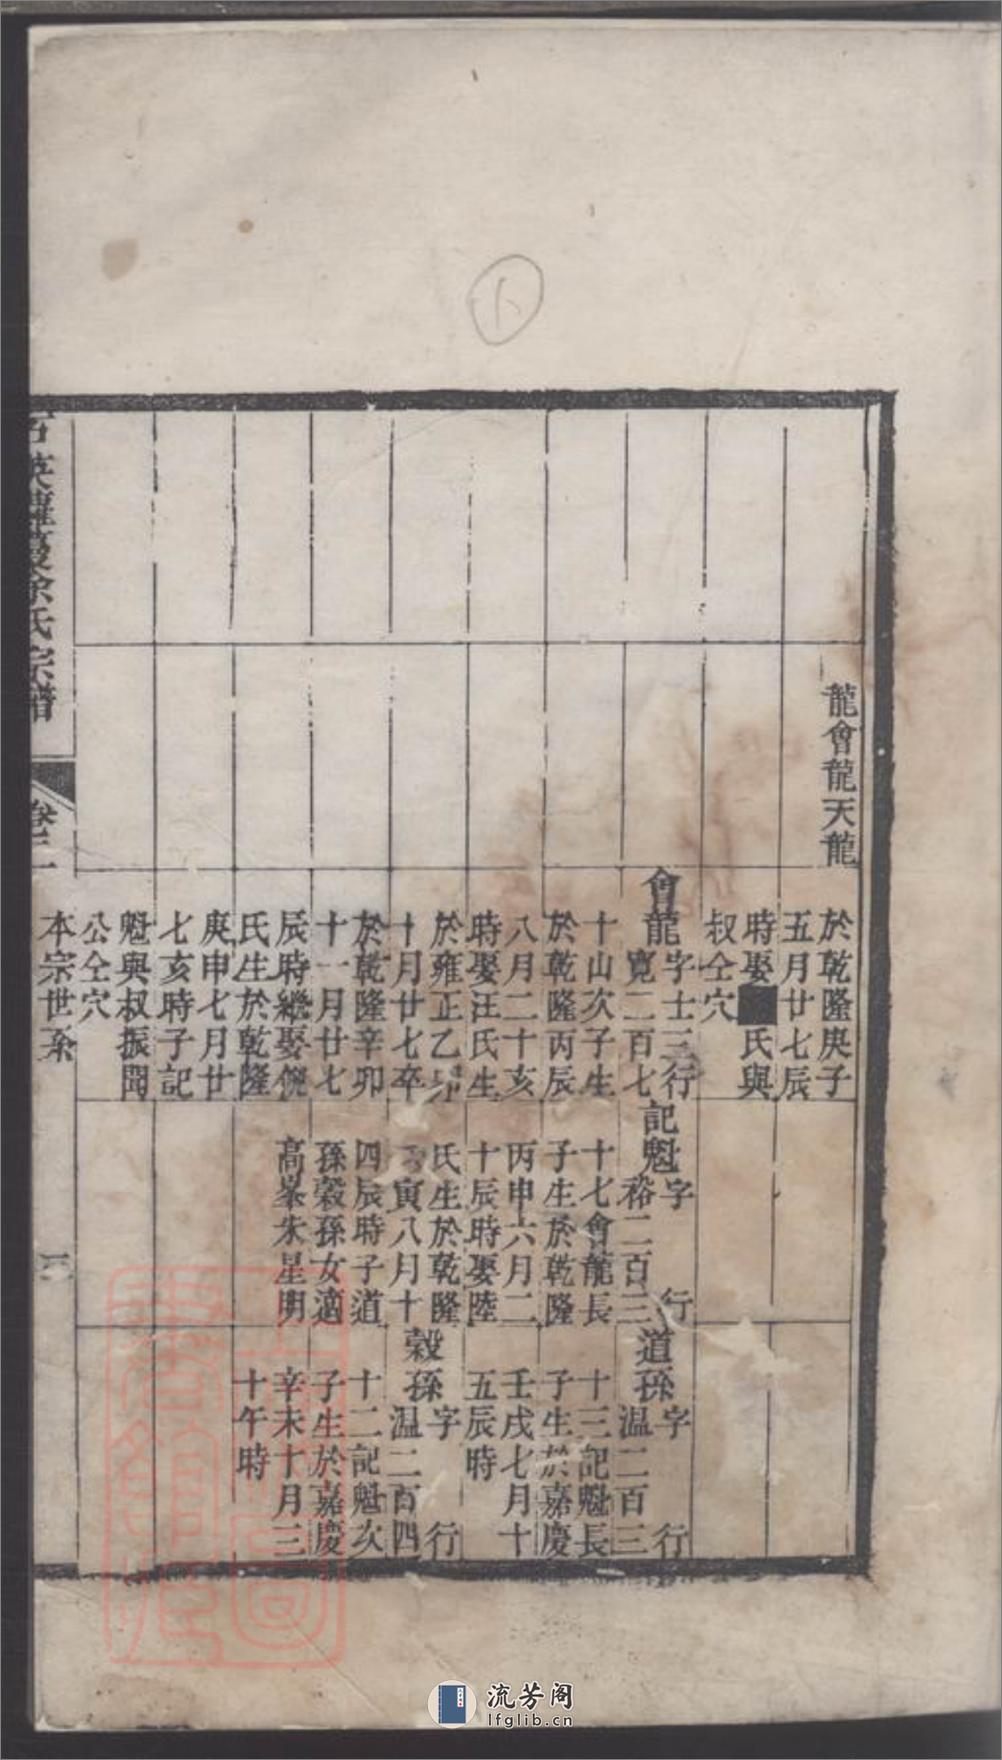 卜
龍會龍天龍
於乾隆庚子
五月廿七辰
時娶■氏與
叔仝穴
會龍字士三行
寬二百七
十山次子生
於乾隆丙辰
八月二十亥
時娶汪氏生
於雍正乙卯
十月廿七卒
於乾隆辛卯
十一月廿七
辰時繼娶倪
氏生於乾隆
庚申七月廿
七亥時子記
魁與叔振聞
公仝穴
記魁字 行
裕二百三
十七會龍長
子生於乾隆
丙申六月二
十辰時娶陸
氏生於乾隆
寅八月十
四辰時子道
孫穀孫女適
高峯朱星明
道孫字 行
温二百三
十三記魁長
子生於嘉慶
壬戌七月十
五辰時
穀孫字 行
温二百四
十二記魁次
子生於嘉慶
辛未十月三
十午時
英 余氏宗譜
卷二
本宗世系
流芳阁
lfglib.cn